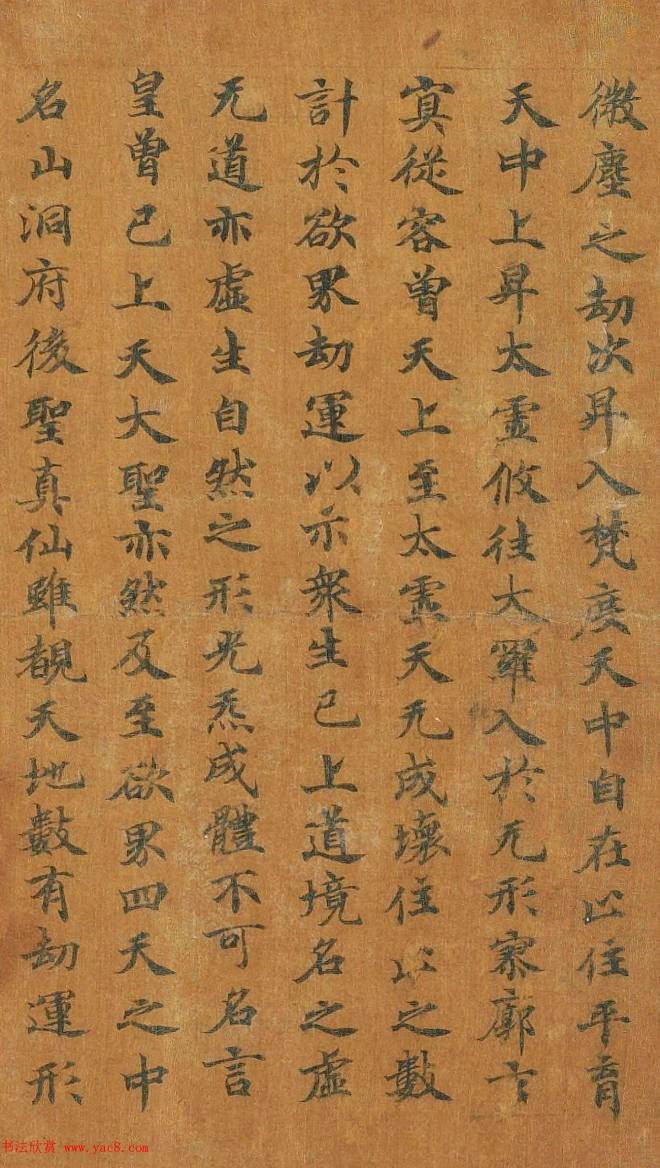 微塵之劫次昇入梵度天中自在以住平育
天中上昇太霊攸往大羅入於无形寥廓
㝠從容曾天上至太霊天无成壞住以之數
計於欲界劫運以示衆生已上道境名之虚
无道亦虚生自然之形光炁成體不可名言
皇曾已上天大聖亦然及至欲界四天之中
名山洞府後聖真仙雖覩天地數有劫運形
书法欣赏 www.yac8.com